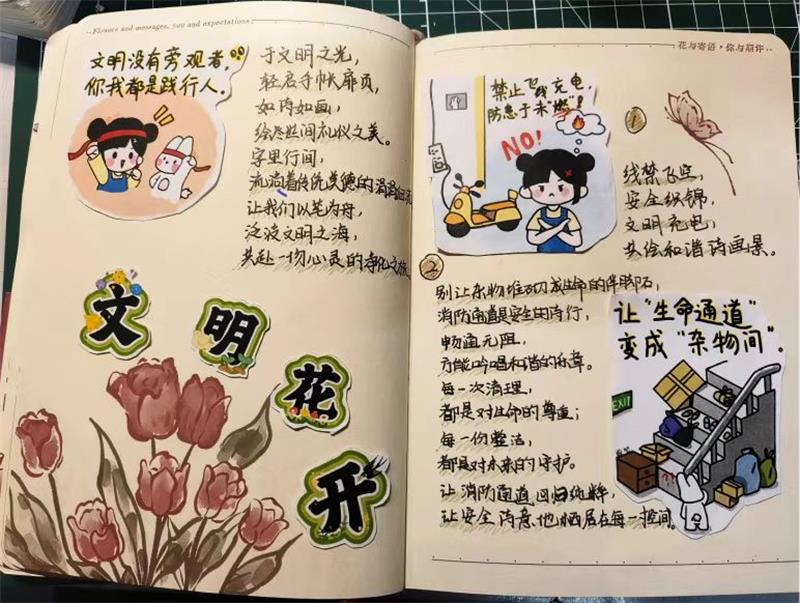 ..Flowers and messages, you and expectations..
文明没有旁观者,
你我都是践行人.
于文明之光,
轻启手帐扉页,
如诗如画,
绘尽世间礼仪之美。
字里行间,
流淌着传统美德的涓涓细流
让我们以笔为舟,
泛波文明之海,
共赴一场心灵的净化之旅.
文
明
花
开
花与寄语·你与期许..
禁止飞线充电,
防患于未"燃"!
NO!
1
线禁飞空,
安全织锦,
文明充电,
共绘和谐诗画景。
2
别让杂物堆砌成生命的绊脚石,
消防通道是安全的诗行,
畅通无阻,
方能吟唱和谐的乐章。
每一次清理,
都是对生命的尊重;
每一份整洁,
都是对未来的守护。
让消防通道回归纯粹,
让安全诗意地栖居在每一楼间.
让"生命通道"
变成"杂物间".
EXIT